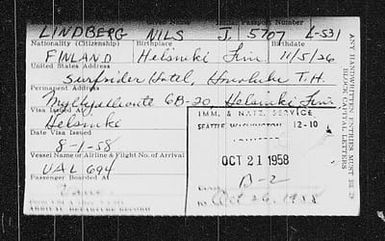 LINDBERG NILS J. 5707 L-531
Nationality (Citizenship) Birthplace Birthdate
FINLAND Helsinki Finn. 11/5/26
United States Address
Surfrider Hotel, Honolulu T.H.
Permanent Address
6B-20, Helsinki Finn
Visa Issued At
Helsinki
Date Visa Issued
8-1-58
Vessel Name or Airline & Flight No. of Arrival
UAL 694
Passenger Boarded At
IMM. & NATZ. SERVICE
SEATTLE WASHINGTON 12-10
OCT 21 1958
B-2
Oct 26, 1958
ANY HANDWRITTEN ENTRIES MUST BE IN
BLOCK CAPITAL LETTERS